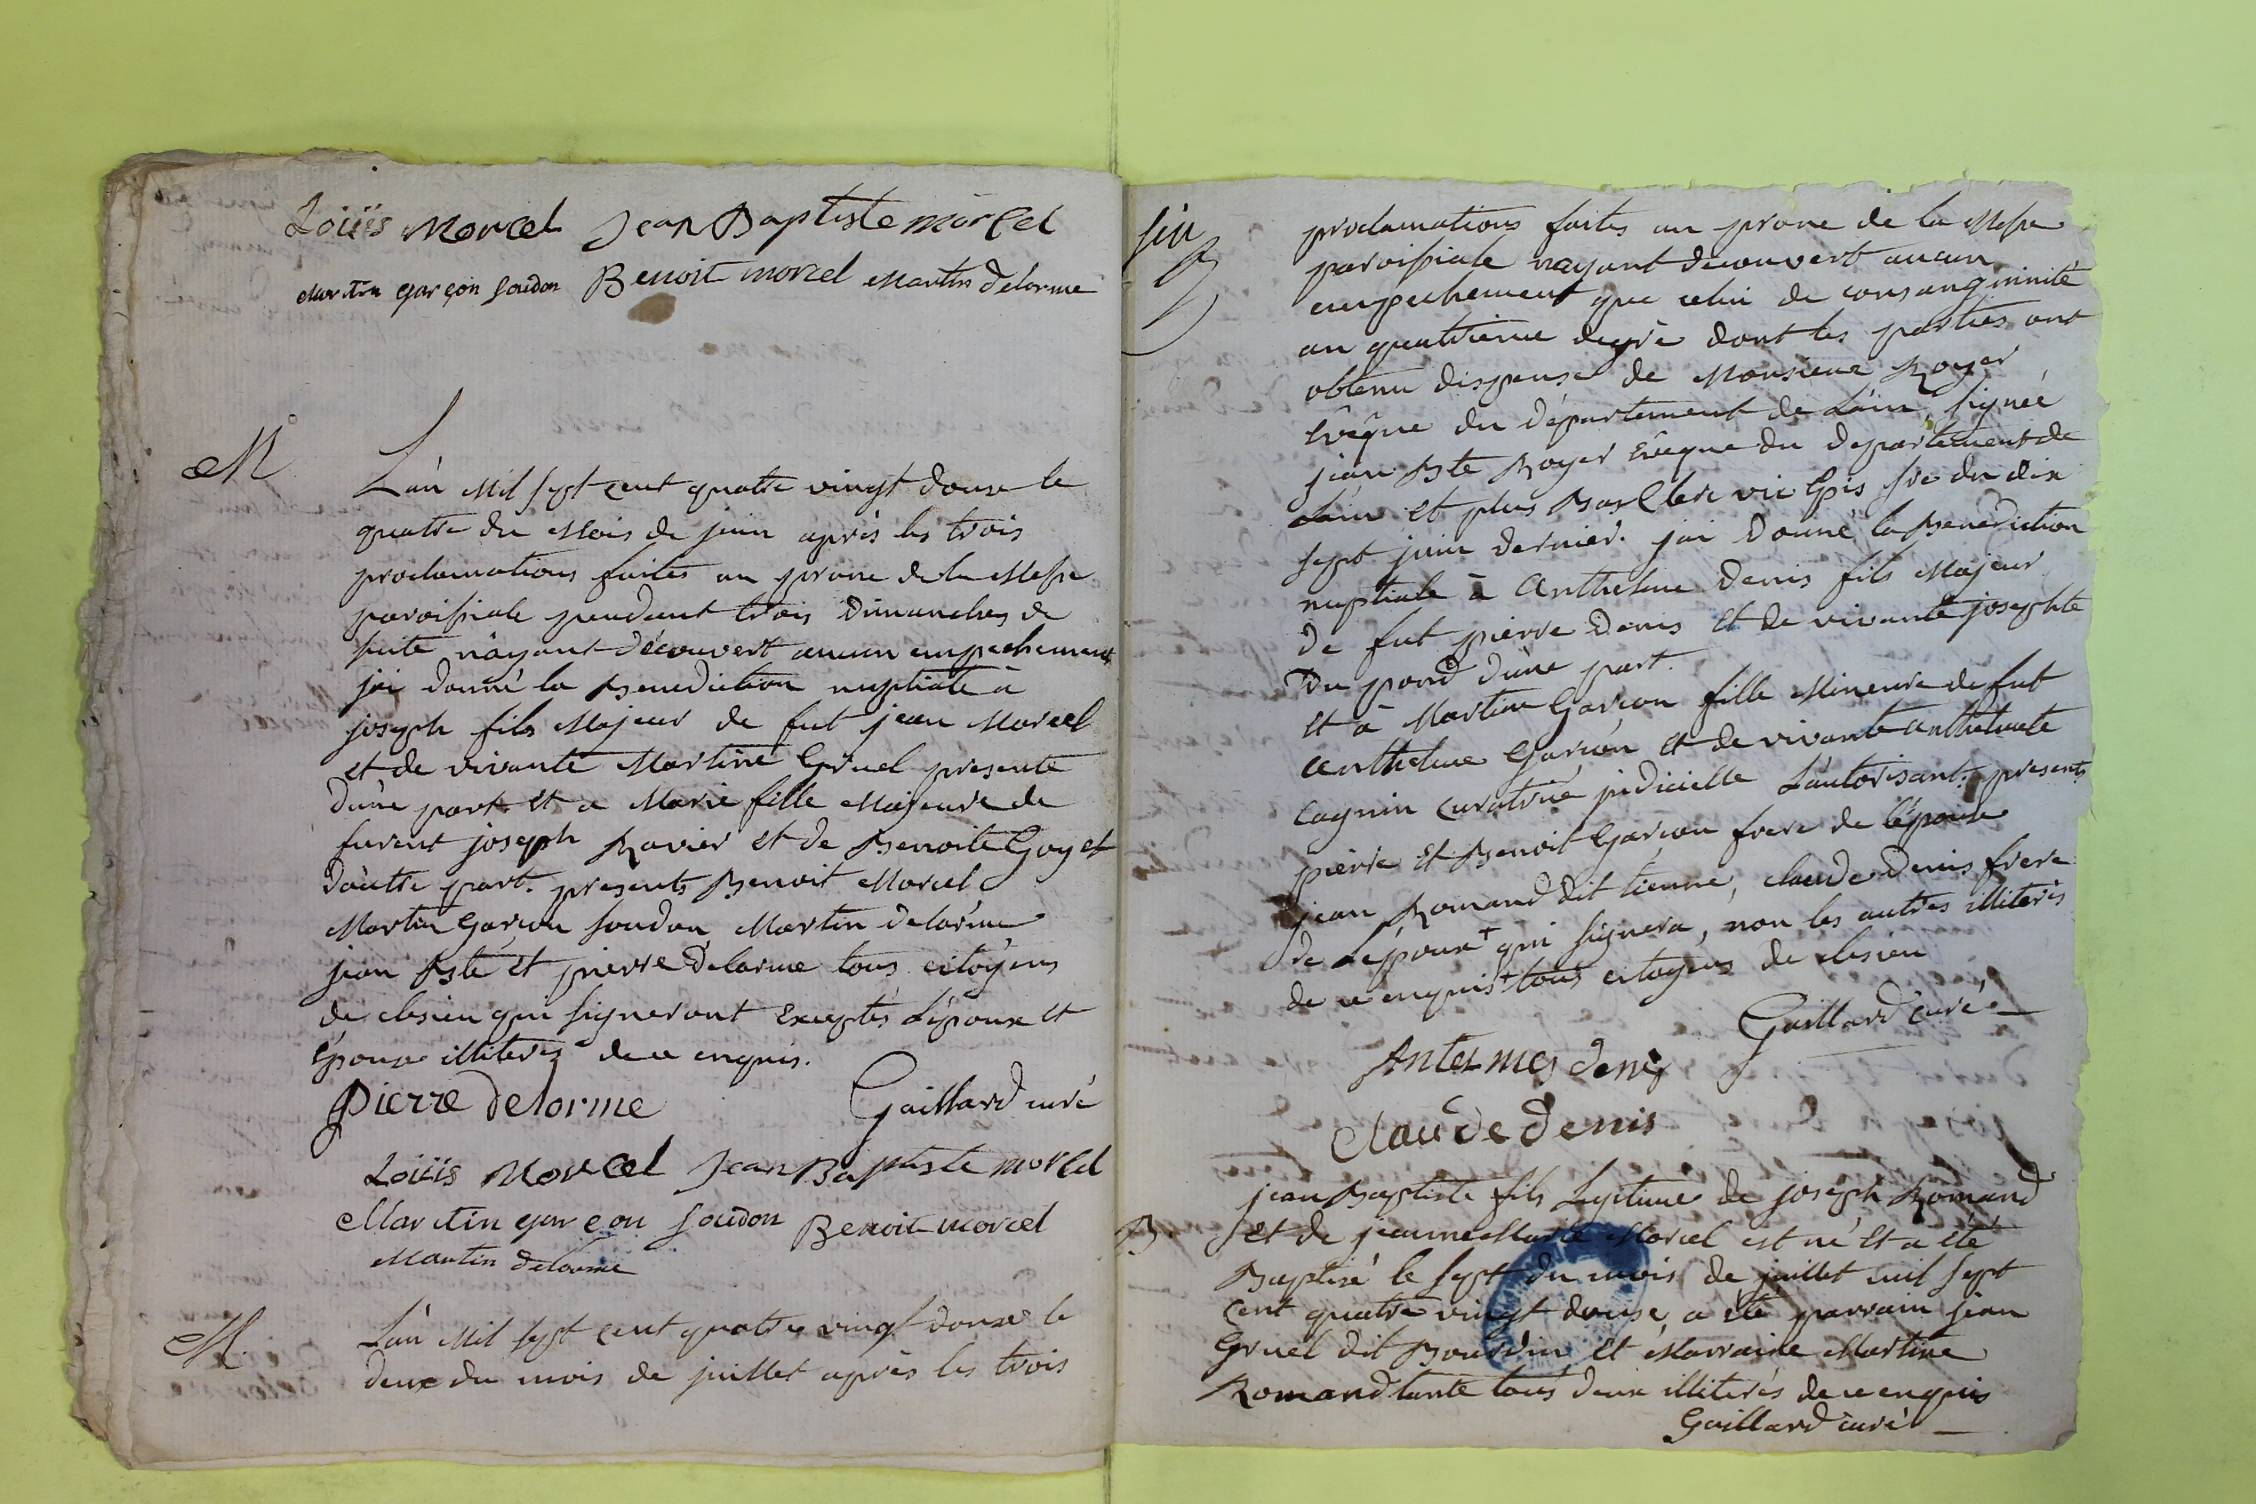 Loüis Morcel Jean Baptiste Morcel
Martin garçon Soudon Benoit morcel Martin Delorme
M
L'an Mil sept cent quatre vingt douse le
quatre du Mois de juin après les trois
proclamations faites au prone de la Messe
paroissiale pendant trois Dimanches de
suite n'ayant découvert aucun empechement
jai donné la Benediction nuptiale à
joseph fils Majeur de fut jean Morcel
et de vivante Martine Gruel presente
d'une part et a Marie fille Majeure de
furent joseph Ravier et de Benoite Goyet
d'autre part. presents Benoit Morcel
Martin Garçon Soudon Martin delorme
jean Bste et pierre Delorme tous citoyens
de clesieu qui signeront Exceptés L'époux et
Epouse illiteres de ce enquis.
Pierre Delorme Gaillard curé
Loüis Morcel Jean Baptiste morcel
Martin garçon Soudon Benoit morcel
Martin delorme
M.
L'an Mil sept cent quatre vingt douse le
deux du mois de juillet après les trois
proclamations faites au prone de la Messe
paroissiale nayant decouvert aucun
empechement que celui de consanginnité
au quatrieme degré dont les parties ont
obtenu dispense de Monsieur Royer
Evêque du département de L'ain, signée
jean Bte Royer Evêque du departement de
L'ain et plus Bas Clerc vic Epis sre du dix
sept juin dernier. jai Donné la Benediction
nuptiale à Anthelme Denis fils Majeur
de fut pierre Denis et de vivante josephte
Du pond d'une part.
et à Martine Garçon fille Mineure de fut
Anthelme Garçon et de vivante anthelmete
Cagnin curatrice judicielle L'autorisant. presents
pierre et Benoit Garçon frere de l'épouse
jean Romand dit tienne, claude Denis frere
de L'époux + qui signera, non les autres illiterés
de ce enquis + tous citoyens de clesieu
Gaillard Curé
Antelmes denis
Claude Denis
B.
jean Baptiste fils Legitime de joseph Romand
et de jeanne Marie Morcel est né et a été
Baptisé le sept du mois de juillet mil sept
cent quatre vingt douse, a été parrain jean
Gruel dit Bourdin et Marraine Martine
Romand tante tous deux illiterés de ce enquis
Gaillard curé